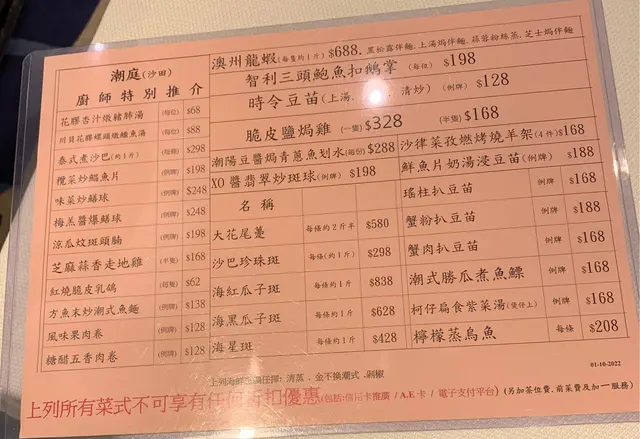 潮庭(沙田)
廚師特別推介
花膠杏汁燉豬肺湯 (每位) $68
川貝花膠螺頭燉鱷魚湯 (每位) $88
泰式煮沙巴(約1斤) (每條) $298
欖菜炒鯔魚片 (例牌) $198
味菜炒鱔球 (例牌) $248
梅羔醬爆鱔球 (例牌) $248
涼瓜炆斑頭腩 (例牌) $198
芝麻蒜香走地雞 (半隻) $168
紅燒脆皮乳鴿 (每隻) $62
方魚末炒潮式魚麵 (例牌) $138
風味果肉卷 (例牌) $128
糖醋五香肉卷 (例牌) $128
澳州龍蝦(每隻約1斤) $688. 黑松露伴麵.上湯焗伴麵.蒜蓉粉絲蒸.芝士焗伴麵
智利三頭鮑魚扣鵝掌 (每位) $198
時令豆苗(上湯、 、清炒) (例牌) $128
脆皮鹽焗雞 (一隻) $328 (半隻) $168
潮陽豆醬焗青蔥魚划水(每份) $288
XO醬翡翠炒斑球(例牌) $198
名稱
大花尾躉 每條約2斤半 $580
沙巴珍珠斑 每條(約1斤) $298
海紅瓜子斑 每條約1斤 $838
海黑瓜子斑 每條約1斤 $628
海星斑 每條約1斤 $428
沙律菜孜燃烤燒羊架(4件) $168
鮮魚片奶湯浸豆苗(例牌) $188
瑤柱扒豆苗 例牌 $168
蟹粉扒豆苗 例牌 $188
蟹肉扒豆苗 例牌 $168
潮式勝瓜煮魚鰾 例牌 $168
柯仔扁食紫菜湯(煲仔上) 例牌 $168
檸檬蒸烏魚 每條 $208
01-10-2022
上列海鮮 擇: 清蒸 .金不換潮式 .剁椒
上列所有菜式不可享有任何折扣優惠(包括:信用卡推廣 / A.E 卡 / 電子支付平台) (另加茶位費.前菜費及加一服務)